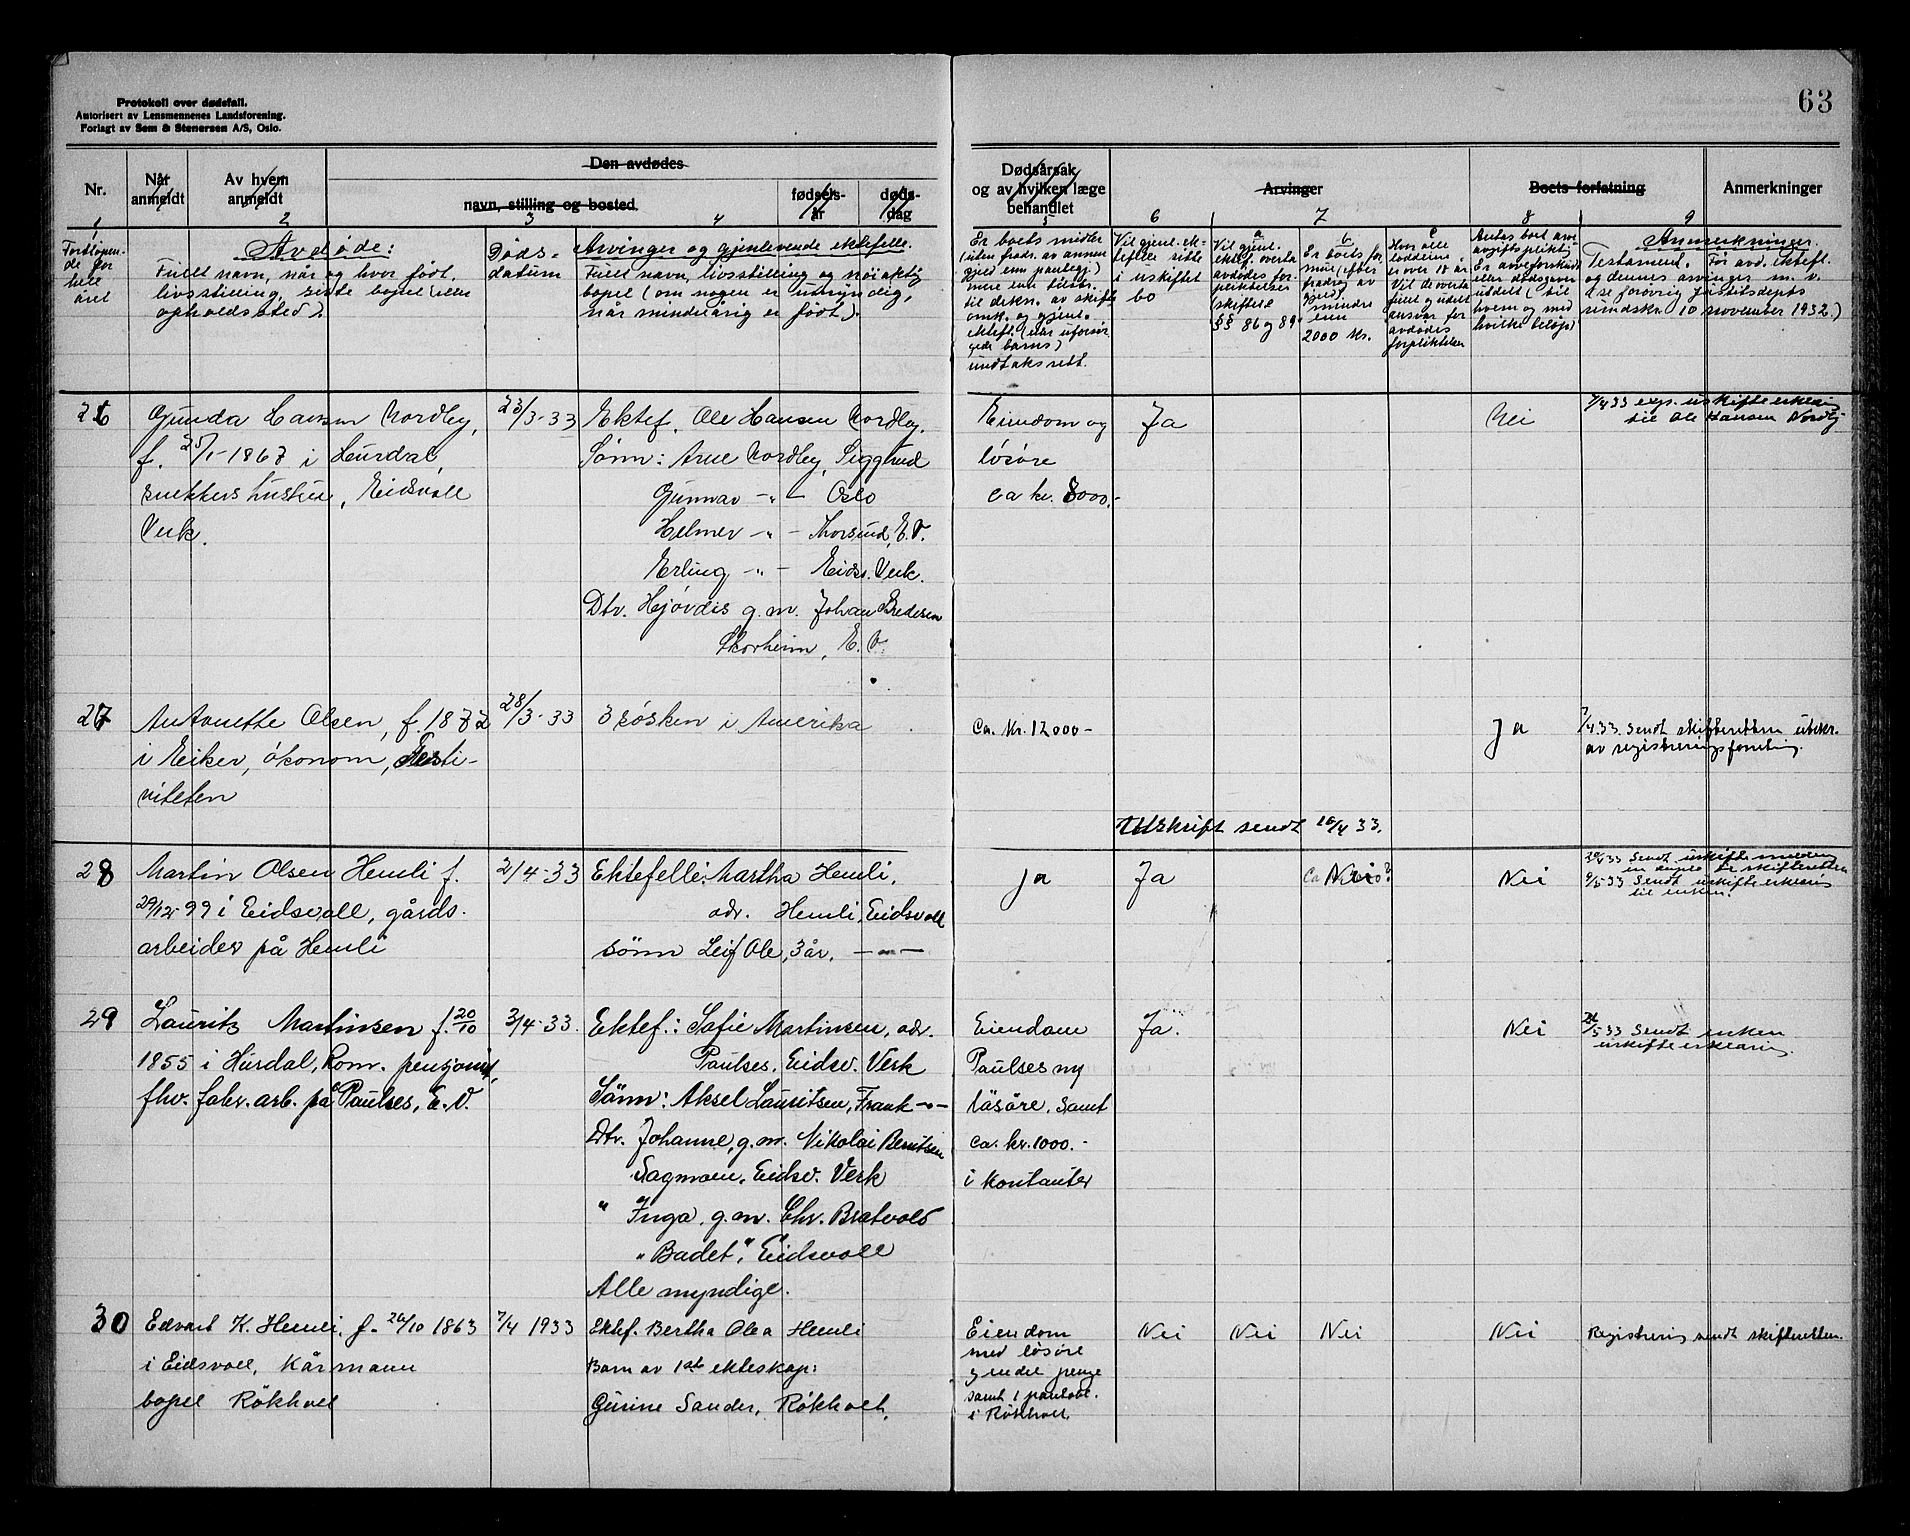 63
Protokoll over dødsfall.
Autorisert av Lensmennenes Landsforening.
Forlagt av Sem & Stenersen A/S, Oslo.
Nr.
Når anmeldt
Av hvem anmeldt
Den avdødes
navn, stilling og bosted
fødsels-år
døds-dag
Dødsårsak
og av hvilken læge
behandlet
Arvinger
Boets forfatning
Anmerkninger
1 2 3 4 5 6 7 8 9
Fortløpen-
de for
hele
året
Avdøde:
Fullt navn, når og hvor født.
livsstilling, siste bopel (eller
opholdssted).
Døds-
datum
Arvinger og gjenlevende ektefelle.
Fullt navn, livsstilling og nøiaktig
bopel (om nogen er umyndig,
når mindreårig er født).
Er boets midler
(uten fradr. av annen
gjeld enn pantegj.)
mere enn tilstr.
til dekn. av skifte
omk. og gjenl.
ektef. (eller uforsør-
gede barns)
undtaksrett.
Vil gjenl. ek-
tefelle sitte
i uskiftet
bo
a
Vil gjenl.
ektef. overta
avdødes for-
pliktelser
(skiftel
§§ 86 og 89
b
Er boets for-
mue (efter
fradrag av
gjeld)
mindre
enn
2000 kr.
c
Hvis alle
loddeiere
er over 18 år
Vil de overta
fullt og udelt
ansvar for
avdødes
forpliktelser
Antas boet arve-
avgiftspliktig
Er arveforskudd
eller dødsgaver
uddelt (til
hvem og med
hvilke beløp)
Anmerkninger.
Testament. Før avd. ektefl.
og dennes arvinger m.v.
(se forøvrig Justitsdepts
rundskr. 10 november 1932.)
26
Gunda Hansen Nordby,
f. 25/1-1867 i Hurdal,
snekkers hustru, Eidsvoll
Verk.
23/3-33
Ektef. Ole Hansen Nordby.
Sønn: Arne Nordby, Siggerud
Gunnar -"- Oslo
Helmer -"- Morsund, E.V.
Erling -"- Eidsv. Verk.
Dtr. Hjørdis g.m. Johan Bredesen
Skorheim, E.V.
Eiendom og
løsøre
ca kr. 8000.-
Ja
Nei
7/4 33 exp. uskifteerklæring
til Ole Hansen Nordby
27
Antonette Olsen, f. 1872
i Eiker, økonom, Festi-
viteten
28/3-33
3 søsken i Amerika
ca. kr. 12000-
Ja
7/4.33. Sendt skifteretten utskr.
av registreringsforretning.
Utskrift sendt 26/4 33.
28
Martin Olsen Hemli f.
29/12-99 i Eidsvoll, gårds-
arbeider på Hemli
2/4-33
Ektefelle: Martha Hemli,
adr. Hemli, Eidsvoll
sønn Leif Ole, 3 år. -"-
Ja
Ja
Nei
Nei
Sendt
9/5-33 Sendt uskifteerklæring
til enken.
29
Lauritz Martinsen f. 20/10
1855 i Hurdal, Kom. pensjonist,
fhv. fabr. arb. på Paulses, E.V.
3/4-33.
Ektef.: Sofie Martinsen, adr.
Paulses, Eidsv. Verk
Sønn: Aksel Lauritsen, Frank -"-
Dtr. Johanne, g.m. Nikolai Berntsen
Sagmoen, Eidsv. Verk
" Inga, g.m. Chr. Bratvold
"Badet", Eidsvoll
Alle myndige.
Eiendom
Paulses ny
løsøre. Samt
ca. kr. 1000.-
i kontanter
Ja.
Nei
/5 33 Sendt enken
uskifteerklæring.
30
Edvart K. Hemli, f. 26/10 1863
i Eidsvoll, Kårmann
bopel Røkholt
7/4 1933
Ektef. Bertha Olea Hemli
Barn av 1ste ekteskap:
Gurine Sander, Røkholt,
Eiendom
med løsøre
og endel penge
samt 1 panteobl.
i Røkholt
Nei
Nei
Nei
Nei
Registrering sendt skifteretten.